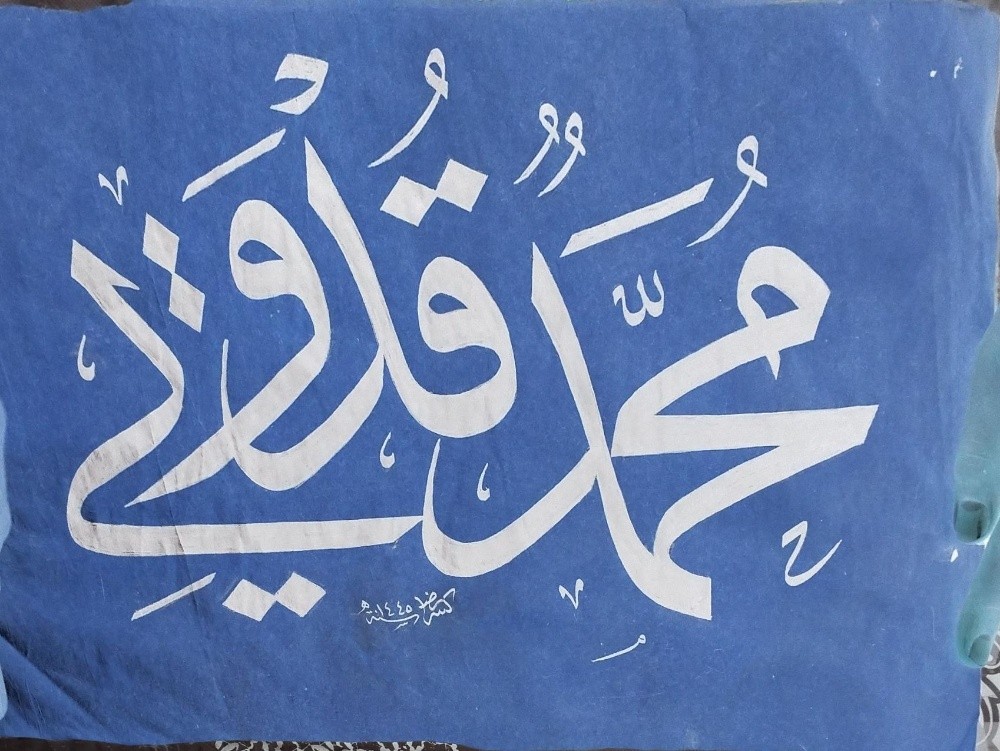 مُحَمَّدٌ قُدْوَتِي
كتبه سنة ١٤٤٥ه